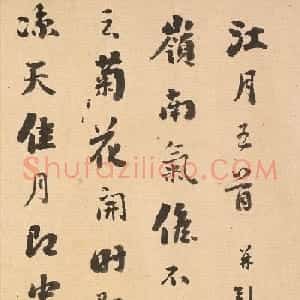 江月五首 并引
嶺南氣候不
云菊花開時
涼天佳月即中
Shufaziliao.com